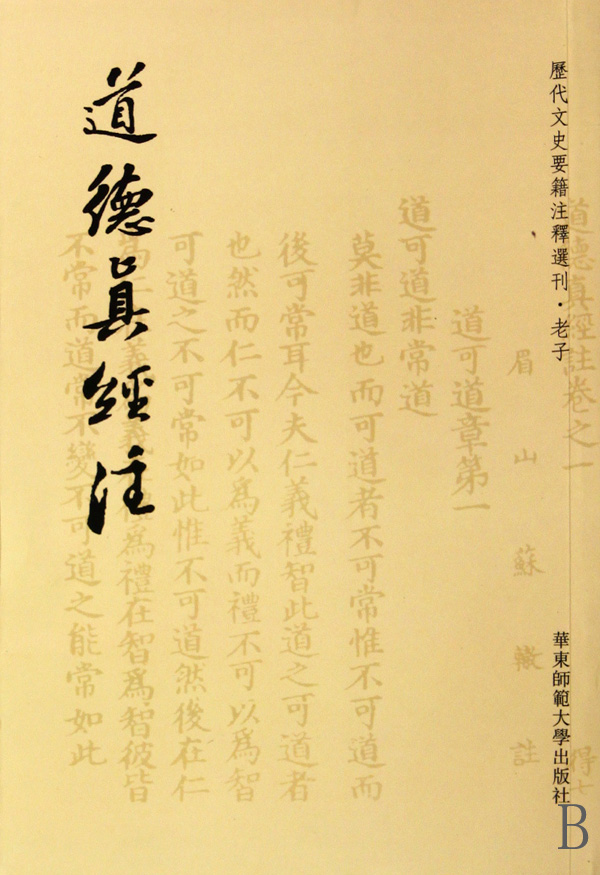 道德真經註卷之一
得七
歷代文史要籍注釋選刊·老子
華東師範大學出版社
眉山蘇轍註
道可道章第一
道可道非常道
莫非道也而可道者不可常惟不可道而
後可常耳今夫仁義禮智此道之可道者
也然而仁不可以爲義而禮不可以爲智
可道之不可常如此惟不可道然後在仁
爲禮在智爲智彼皆
不常而道常不變不可道之能常如此
道德眞經注
B